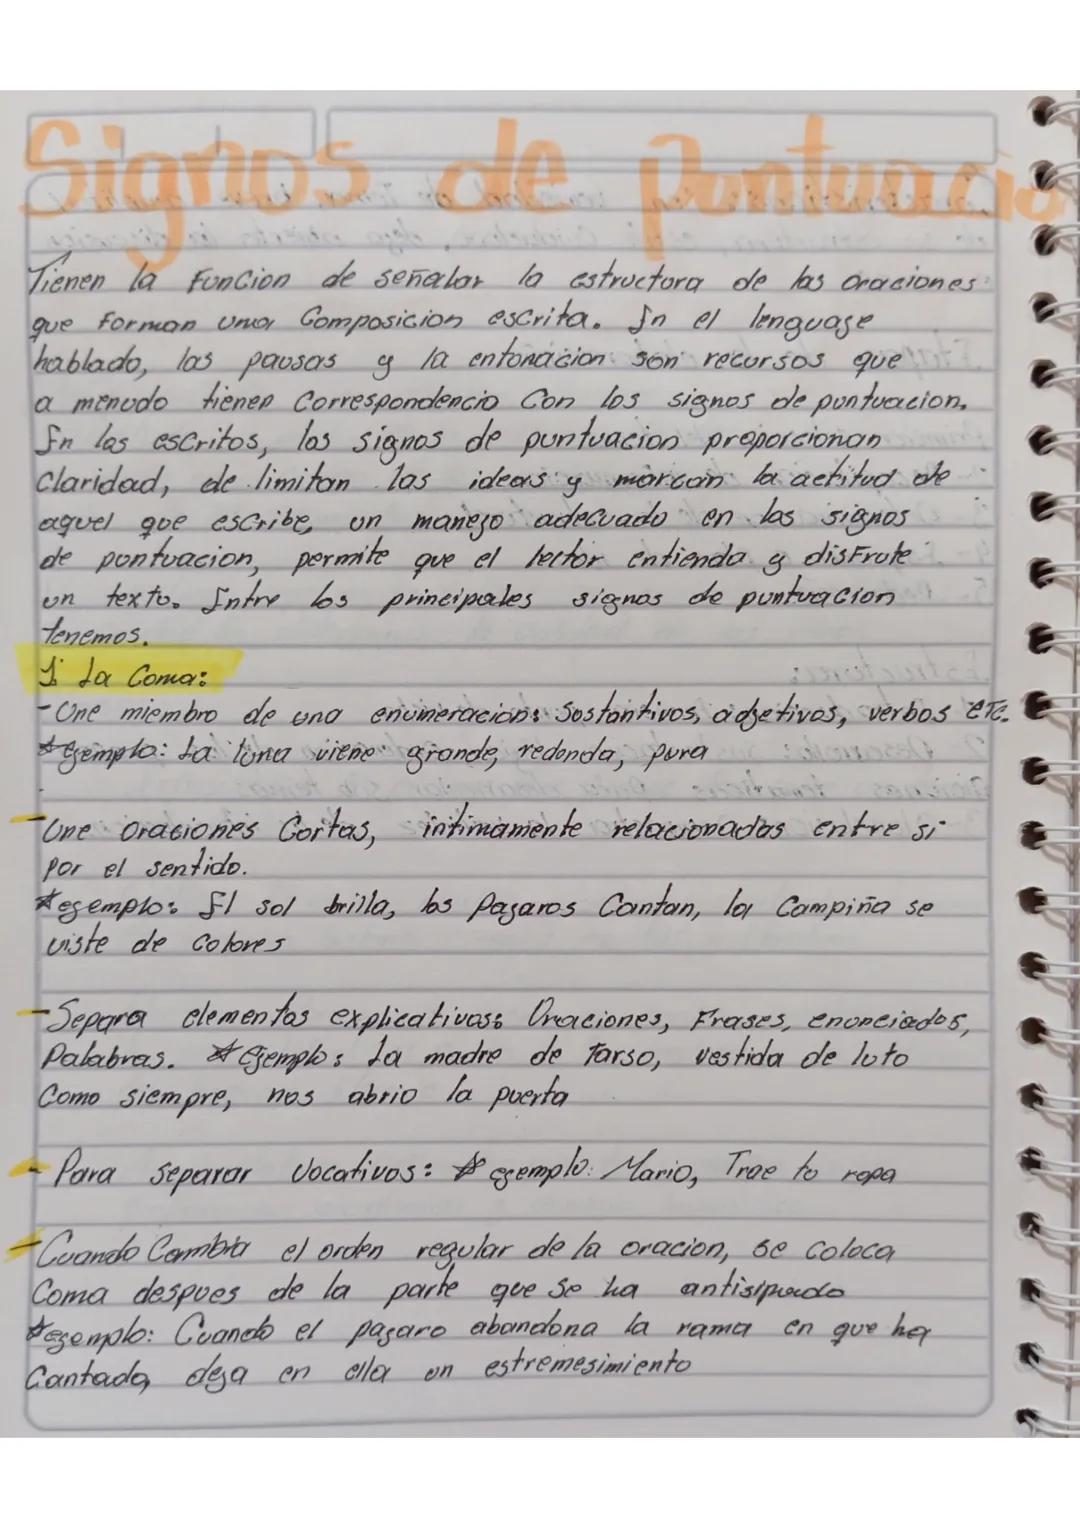 Signos de Puntuacio
Tienen la Funcion de señalar la estructura de las oraciones
que Forman una Composicion escrita. En el lenguaje
hablado, las pausas y la entonacion son recursos que
a menudo tienen Correspondencia Con los signos de puntuacion.
En los escritos, los signos de puntuacion proporcionan
Claridad, de limitan las ideas y marcan la actitud de
aquel que escribe, un manejo adecuado en los signos
de puntuacion, permite que el lector entienda y disFrute
un texto. Entre los principales signos de puntuacion
tenemos.
1. La Coma:
- Une miembro de una enumeracion: Sustantivos, adjetivos, verbos etc.
*Ejemplo: La luna viene grande, redonda, pura
- Une oraciones Cortas, intimamente relacionadas entre si
por el sentido.
*ejemplo: El sol brilla, los Pajaros Cantan, la Campiña se
viste de Colores
- Separa elementos explicativos: Oraciones, Frases, enunciados,
Palabras. *Ejemplo: La madre de Tarso, vestida de luto
Como siempre, nos abrio la puerta
- Para separar Vocativos: *ejemplo: Mario, Trae tu ropa
- Cuando Cambia el orden regular de la oracion, se coloca
Coma despues de la parte que se ha antisipado
*ejemplo: Cuando el pajaro abandona la rama en que ha
Cantado, deja en ella un estremesimiento